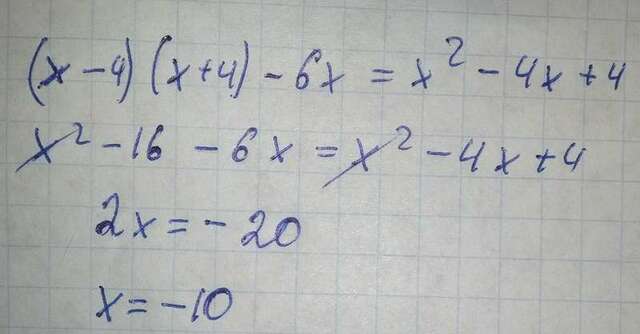 (x-4)(x+4)-6x=x²-4x+4
x²-16-6x=x²-4x+4
2x=-20
x=-10